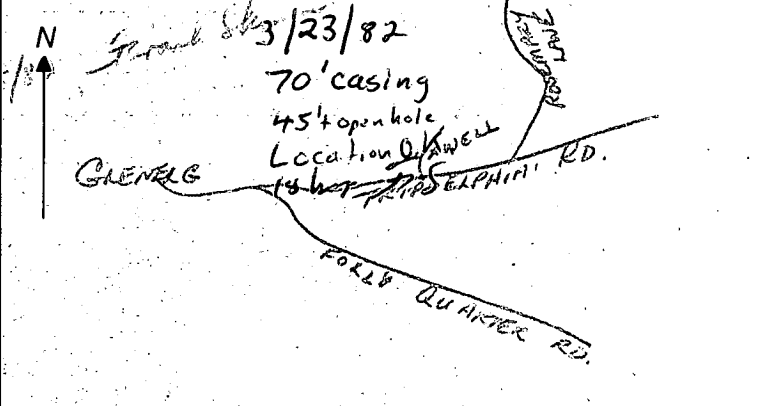 N
3/23/82
70' casing
45'± open hole
Location OK
WELL
GLENELG
TRIADELPHIA RD.
ROSEMARY LANE
FORLY QUARTER RD.